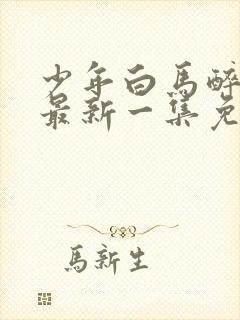 少年白馬醉
最新一集免
馬新生